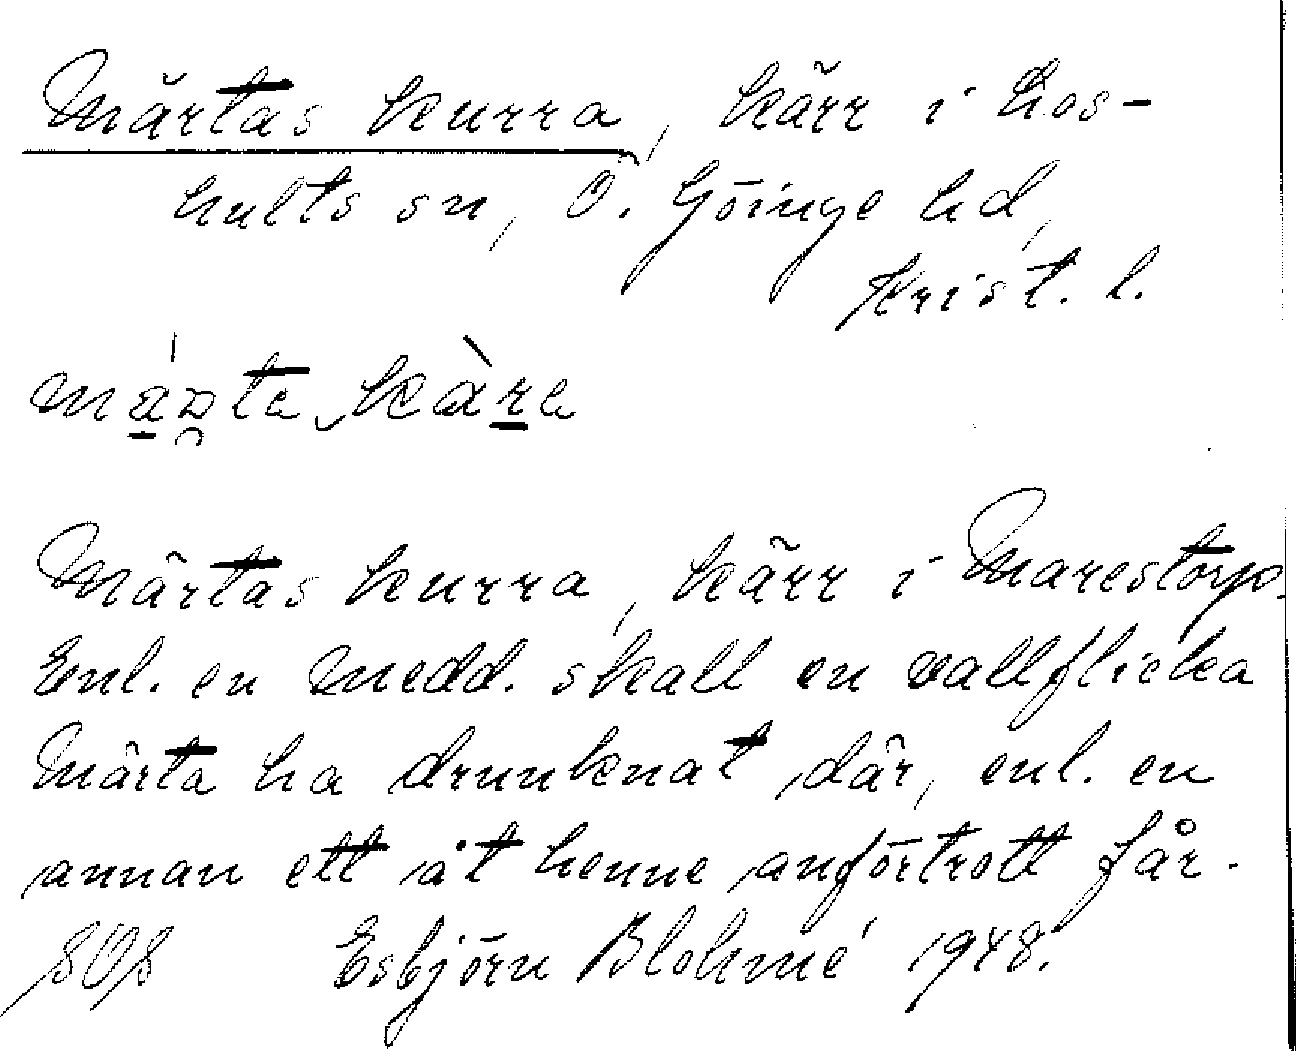 Märtas kurra, kärr i Los-
hults sn, Ö. Göinge hd,
Krist. l.
Märtas kurra, kärr i Marestorp.
Enl. en medd. skall en vallflicka
Märta ha drunknat där, enl. en
annan ett åt henne anförtrott får.
SOS Esbjörn Blohmé 1948.